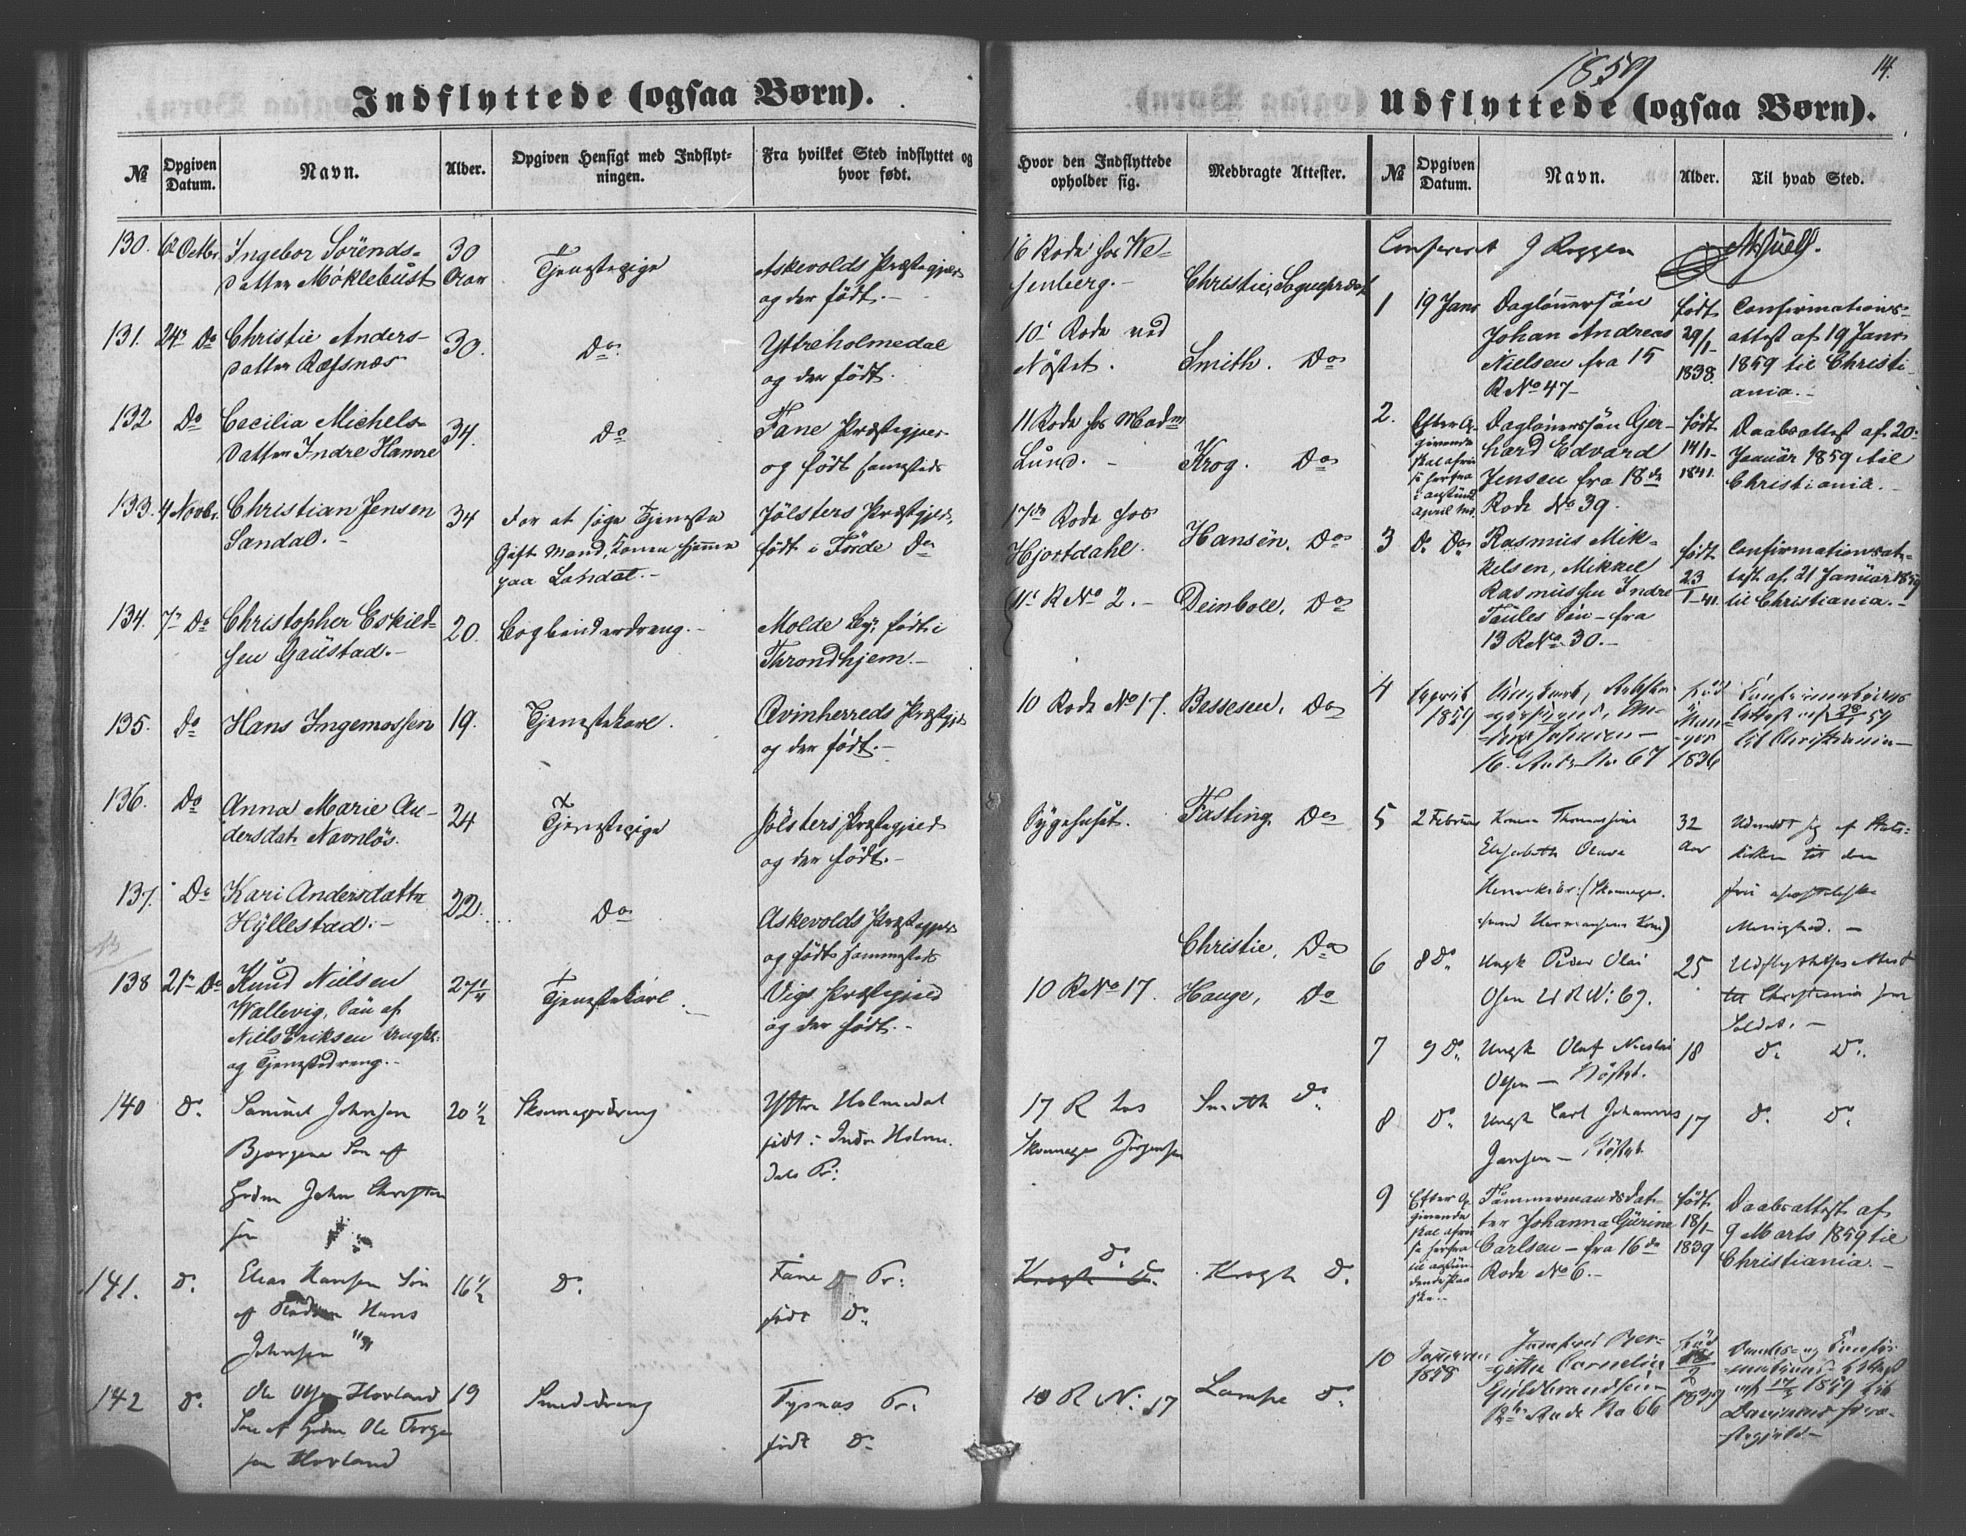 1859
14.
Indflyttede (ogsaa Børn).
Udflyttede (ogsaa Børn).
№
Opgiven Datum.
Navn.
Alder.
Opgiven Hensigt med Indflyt-
ningen.
Fra hvilket Sted indflyttet og
hvor født.
Hvor den Indflyttede
opholder sig.
Medbragte Attester.
№
Opgiven Datum.
Navn.
Alder.
Til hvad Sted.
130. Octbr. Ingebor Sörends-
datter Möklebust
30
Tjenestepige
Askevolds Præstegjeld
og der födt.-
16 Rode hos We-
senberg.-
Christie, Sognepræst
131. 24 Do Christie Anders-
datter Ræfsnæs
30.
Do
Yttreholmedal
og der födt.
10 Rode ved
Nöstet.
Smith. Do
132 Do Cecilia Michels-
datter Indre Hamre
34.
Do
Fane Præstegjeld
og födt sammesteds
11 Rode hos Madm
Lund.-
Krog. Do
133. 4 Novbr. Christian Jensen
Sandal.-
34
For at söge Tjeneste
Gift Mand, Konen hjemme
paa Sandal.-
Jölsters Præstgjeld,
födt i Förde Do
17de Rode hos
Hjortdahl.
Hansen, Do
134. 7 Do Christopher Eskild-
sen Gaustad.-
20.
Bogbinderdreng.-
Molde By, födt i
Throndhjem.-
11 R No 2.-
Deinboll, Do
135. Do Hans Ingemossen
19.
Tjenestekarl.
Qvinherreds Præstgjeld
og der födt.-
10 Rode No 17.
Bessesen, Do
136. Do Anna Marie An-
dersdat. Navnlös.
24
Tjenestepige
Jölsters Præstegjeld
og der födt.-
Sygehuset.
Fasting, Do
137. Do Kari Andersdatter
Hyllestad.-
22.
Do
Askevolds Præstegjeld
og födt sammesteds
Christie, Do
138 21 Do Knud Nielsen
Wallevig, Sön af
Niels Eriksen Ungk.
og Tjenestedreng.-
27 1/4
Tjenestekarl.-
Vigs Præstegjeld
og der födt.-
10 R No 17.
Hauge, Do
140 Do Samuel Johnsen
Sön af
John Christen
sen
20 1/2
Skomagerdreng
Yttre Holmedal
födt i Indre Holme
dals Pr:
17 R hos
Skomager Jörgensen
Smith Do
141. Do Elias Hansen Sön
af Hans
Johnsen
16 1/2
Do
Fane Pr:
födt Do
Do
Krogh Do
Krogh Do
142 Do Ole Olsen Hovland
Sön af Ole
sen Hovland
19
Smededreng
Tysnæs Pr:
födt Do
10 R No 17
Lampe Do
Confereret
1 19 Janr Daglönnersön
Johan Andreas
Nielsen fra 15
R No 47-
födt
29/1
1838.
Confirmations-
attest af 19 Janr
1859 til Christi-
ania.-
2. Efter O-
givende
skal afrei
se herfra
April Md.
Daglönersön Ger-
hard Edvard
Jensen fra 18de
Rode No 39.
födt
14/1-
1841.
Daabsattest af 20
Januar 1859 til
Christiania.
3 Do Do Rasmus Mik-
kelsen, Mikkel
Rasmussen Indre
Sön - fra
13 R No 30.-
födt
23
1-41.
Confirmationsat-
test af 21 Januar 1859
til Christiania.-
4 1859
16. Rode No 67
1836
Confirmations
til Christiania-
5 2 Februar Konen Thomasine
Elisabeth Olava
32
Aar
Udmeldt sig af Stats-
kirken til den
frie apostoliske
Menighed.-
6 8 Do Ungk Peder Olai
Olsen 21 R No 69.
25
Udflyttelses Attest
til Christiania som
Soldat.-
7 9 Do Ungk Olaf Nicolai
Olsen - Nöstet.
18
Do Do
8 Do Ungk Carl Johannes
Jansen - Nöstet
17
Do Do
9 Efter O-
givende
skal afrei
se herfra
Tömmermandsdat-
ter Johanna Gurine
Carlsen - fra 16de
Rode No 6.-
födt
18/1-
1839
Daabsattest af
9 Marts 1859 til
Christiania.-
10 1859
Jomfrue Ber-
gitte Cornelia
Guldbrandsen-
Rode No 66
1839
Daabs- og Confir-
mations-Attest
af 17/3 1859 til